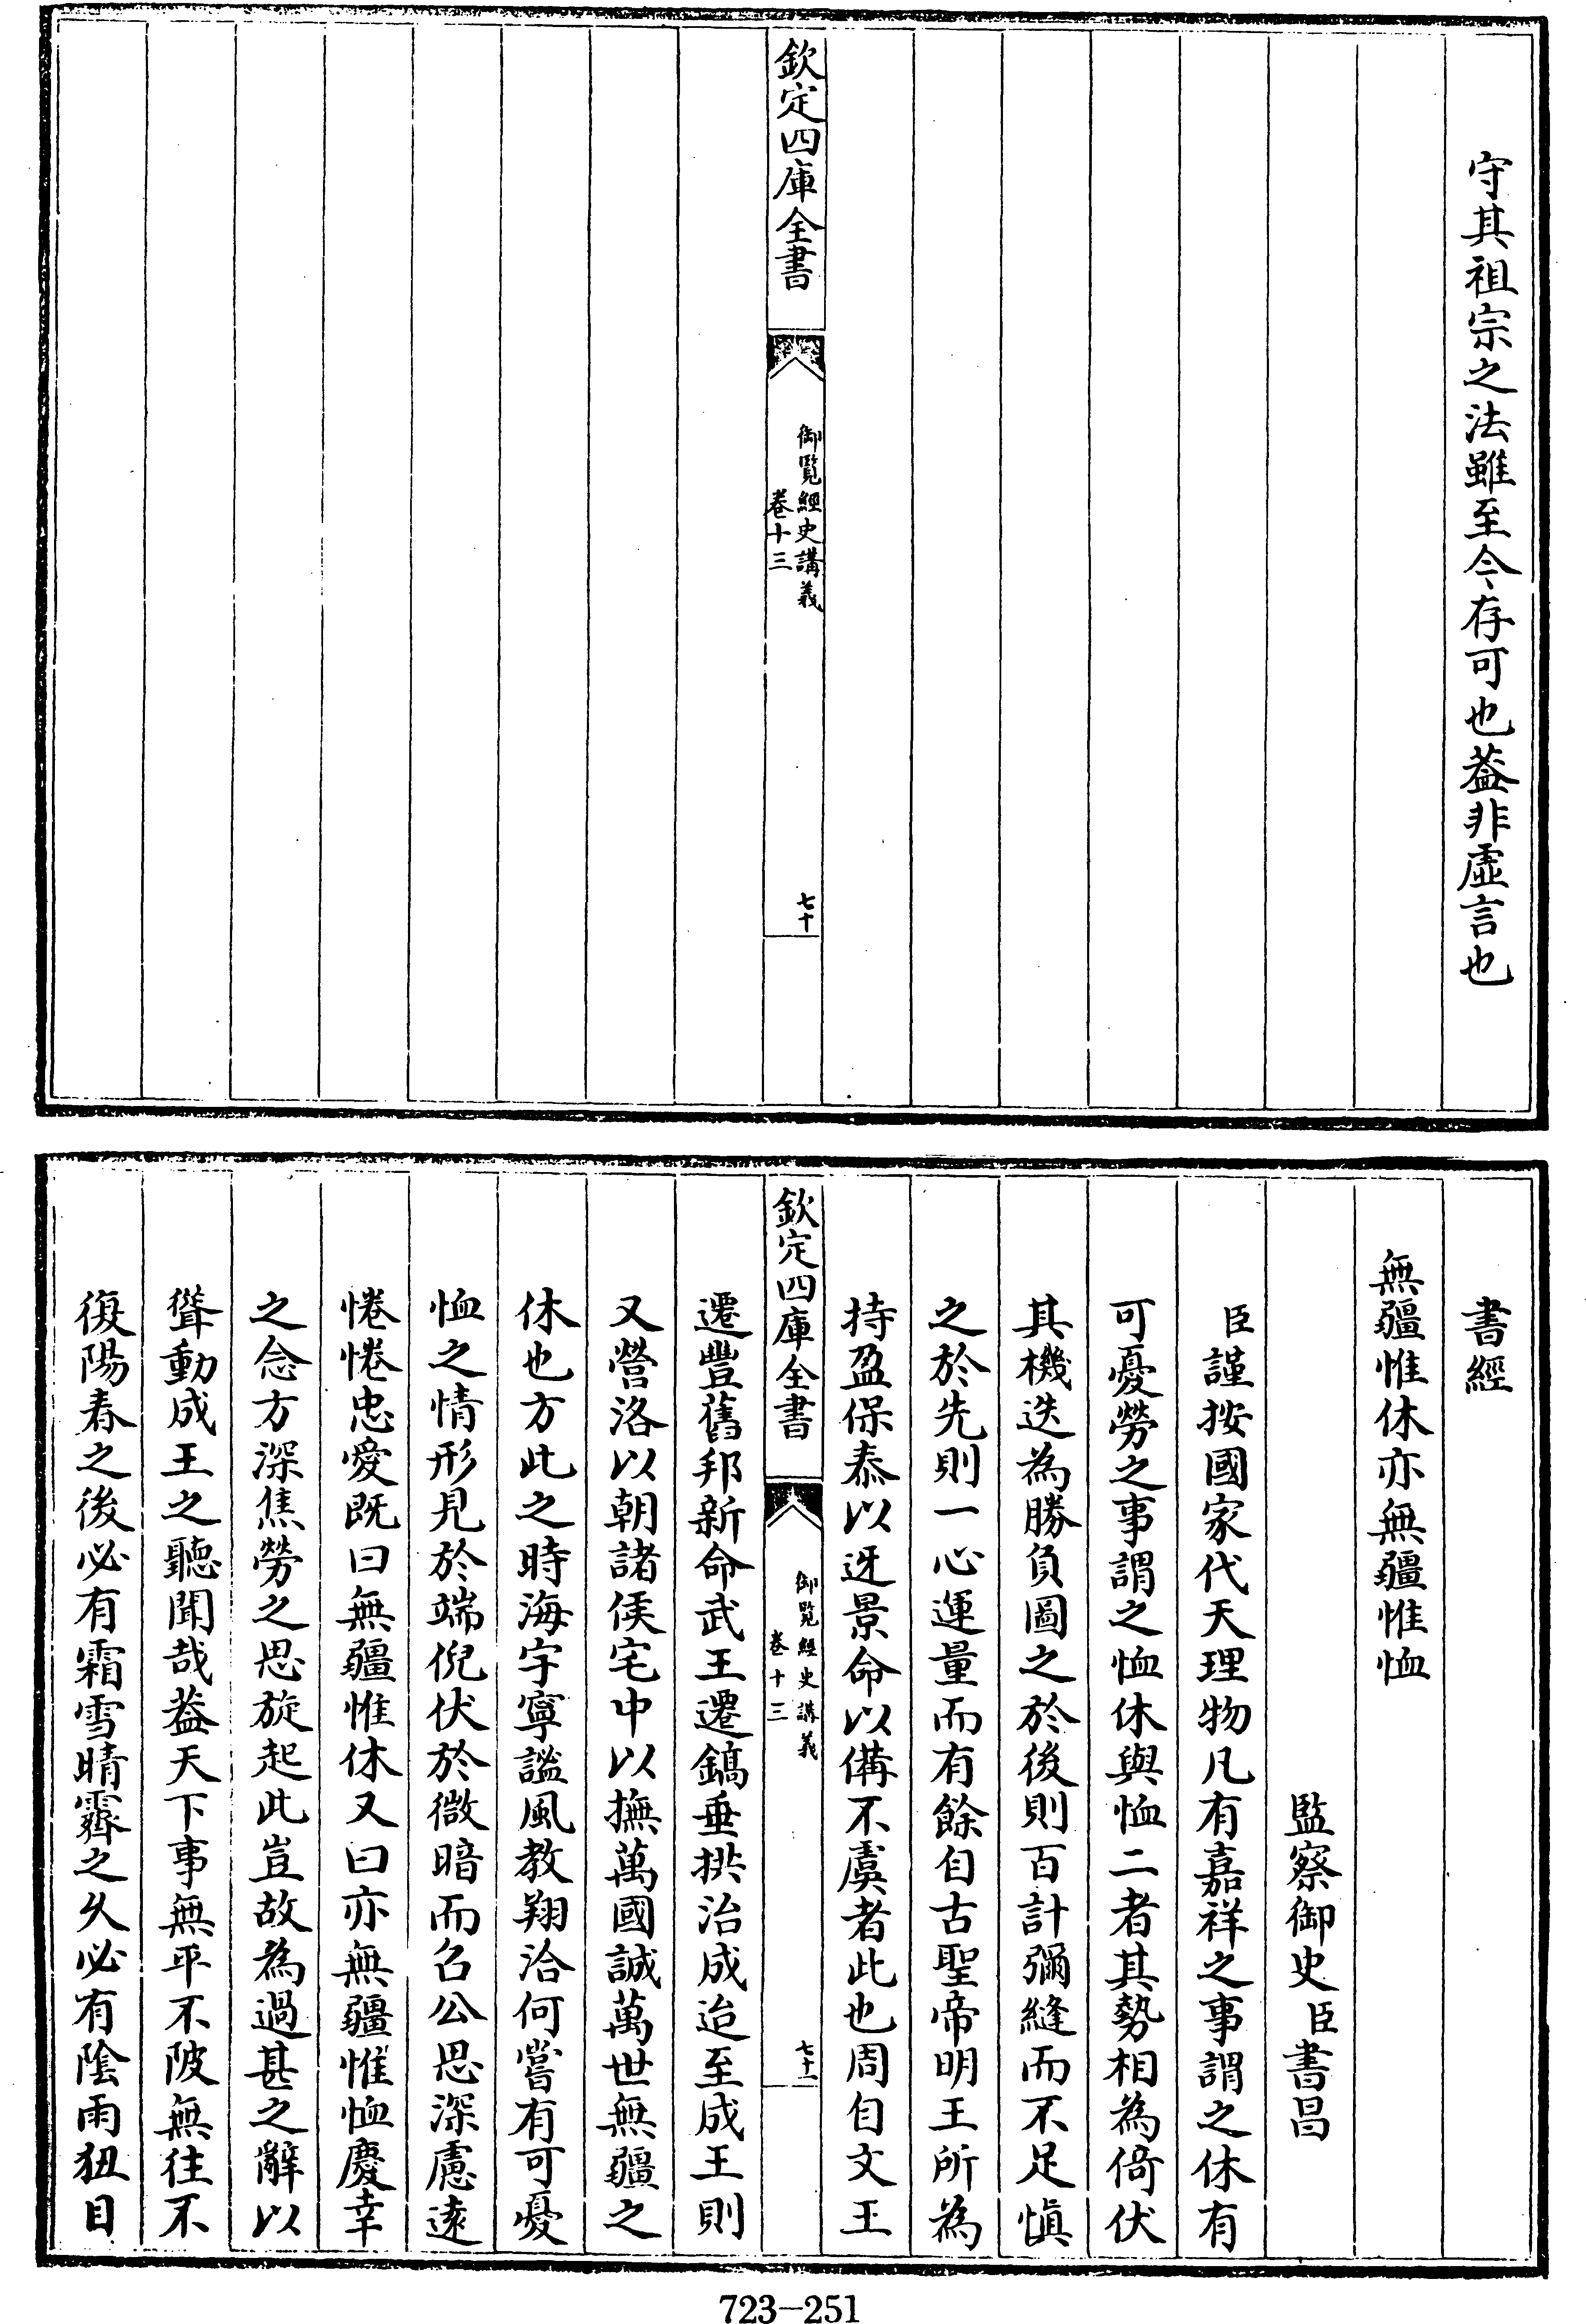 守其祖宗之法雖至今存可也葢非虛言也
欽定四庫全書
御覽經史講義
卷十三
七十
書經
無疆惟休亦無疆惟恤
監察御史臣書昌
臣謹按國家代天理物凡有嘉祥之事謂之休有
可憂勞之事謂之恤休與恤二者其勢相為倚伏
其機迭為勝負圖之於後則百計彌縫而不足慎
之於先則一心運量而有餘自古聖帝明王所為
持盈保泰以迓景命以備不虞者此也周自文王
欽定四庫全書
御覽經史講義
卷十三
七十一
遷豐舊邦新命武王遷鎬垂拱治成迨至成王則
又營洛以朝諸侯宅中以撫萬國誠萬世無疆之
休也方此之時海宇寧謐風教翔洽何嘗有可憂
恤之情形見於端倪伏於微暗而召公思深慮遠
惓惓忠愛既曰無疆惟休又曰亦無疆惟恤慶幸
之念方深焦勞之思旋起此豈故為過甚之辭以
聳動成王之聽聞哉葢天下事無平不陂無往不
復陽春之後必有霜雪晴霽之久必有陰雨狃目
723-251